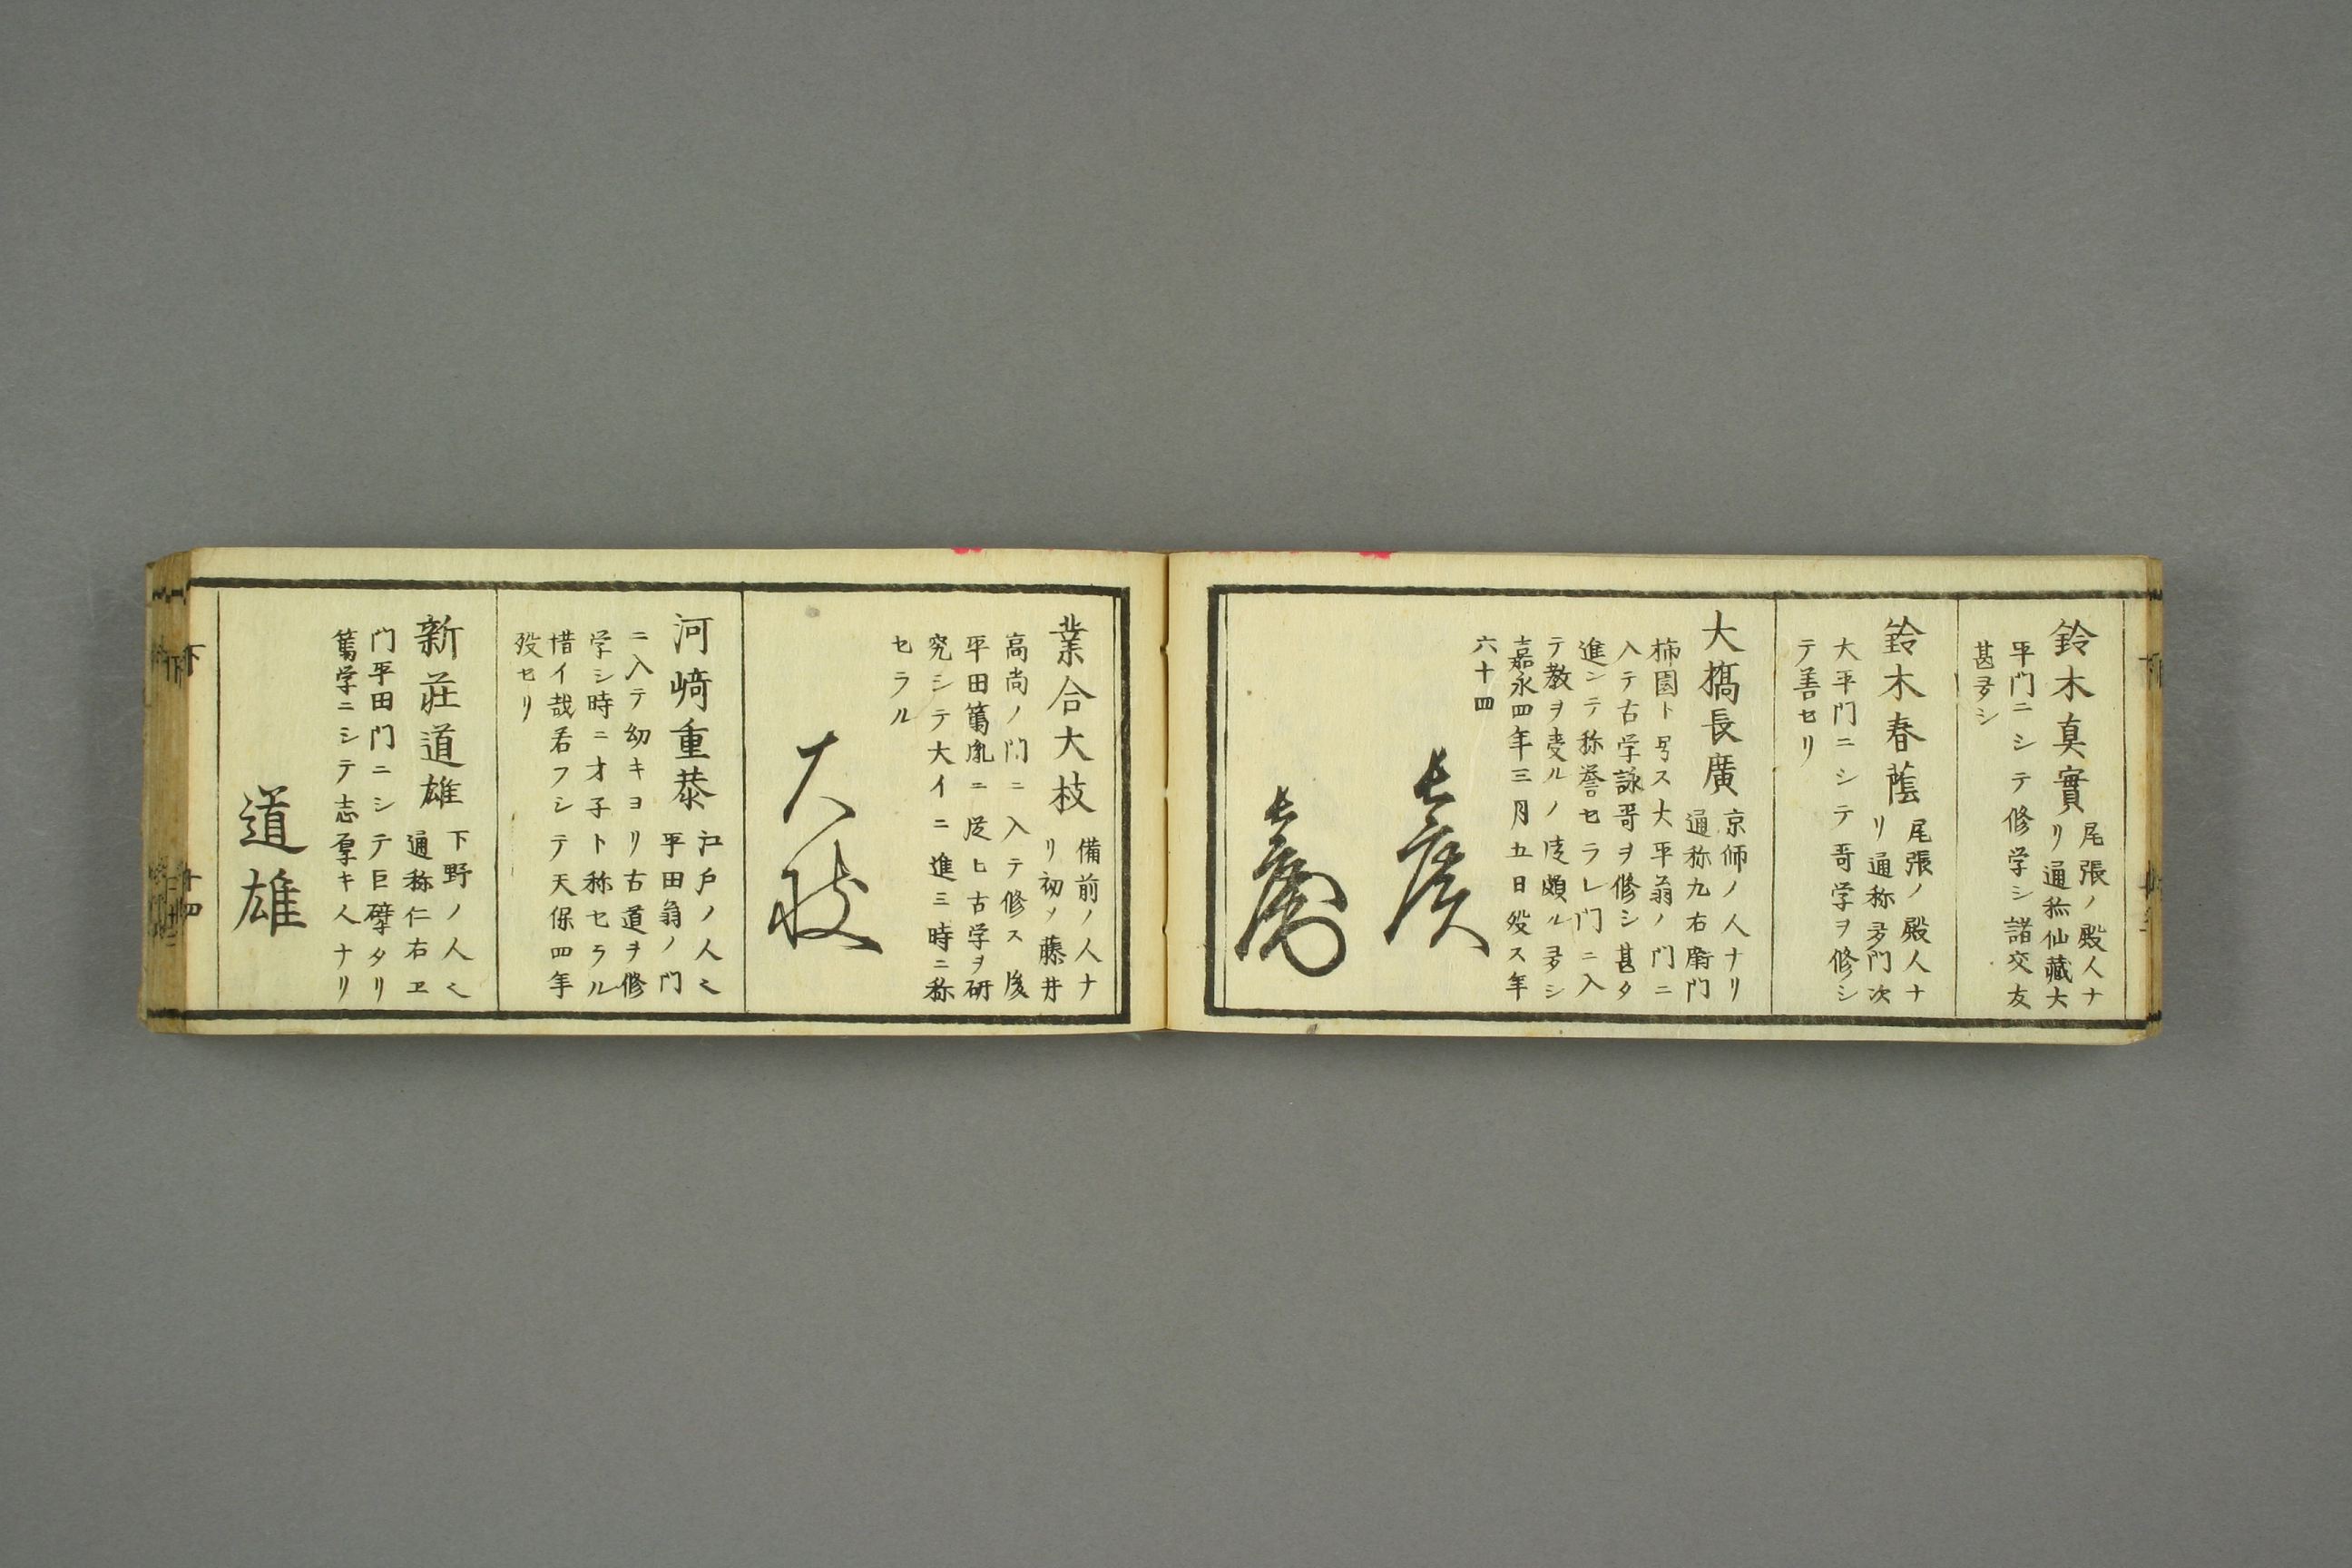 鈴木真實
尾張ノ殿人ナ
リ通称仙藏大
平門ニシテ修学シ諸交友
甚多シ
鈴木春蔭
尾張ノ殿人ナ
リ通称多門次
大平門ニシテ哥学ヲ修シ
テ善セリ
大槗長廣
京師ノ人ナリ
通称九右衛門
柿園ト号ス大平翁ノ門ニ
入テ古学詠哥ヲ修シ甚タ
進ンテ称誉セラレ門ニ入
テ教ヲ受ルノ徒頗ル多シ
嘉永四年三月五日歿ス年
六十四
長廣
業合大枝
備前ノ人ナ
リ初メ藤井
高尚ノ門ニ入テ修ス後
平田篤胤ニ従ヒ古学ヲ研
究シテ大イニ進ミ時ニ称
セラル
大枝
河﨑重恭
江戸ノ人〻
平田翁ノ門
ニ入テ幼キヨリ古道ヲ修
学シ時ニ才子ト称セラル
惜イ哉若フシテ天保四年
歿セリ
新莊道雄
下野ノ人〻
通称仁右ヱ
門平田門ニシテ巨擘タリ
篤学ニシテ志厚キ人ナリ
道雄
下
十四